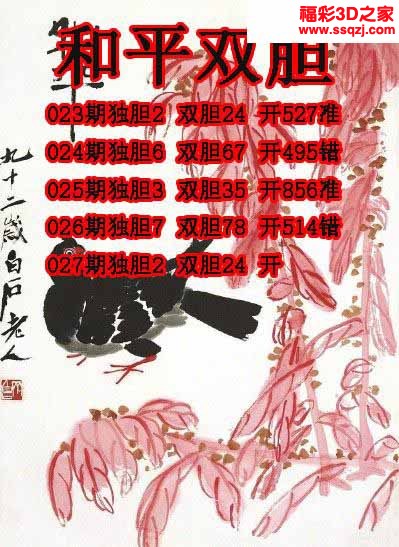 福彩3D之家
www.ssqzj.com
和平双胆
023期独胆2 双胆24 开527准
024期独胆6 双胆67 开495错
025期独胆3 双胆35 开856准
026期独胆7 双胆78 开514错
027期独胆2 双胆24 开
九十二岁白石老人